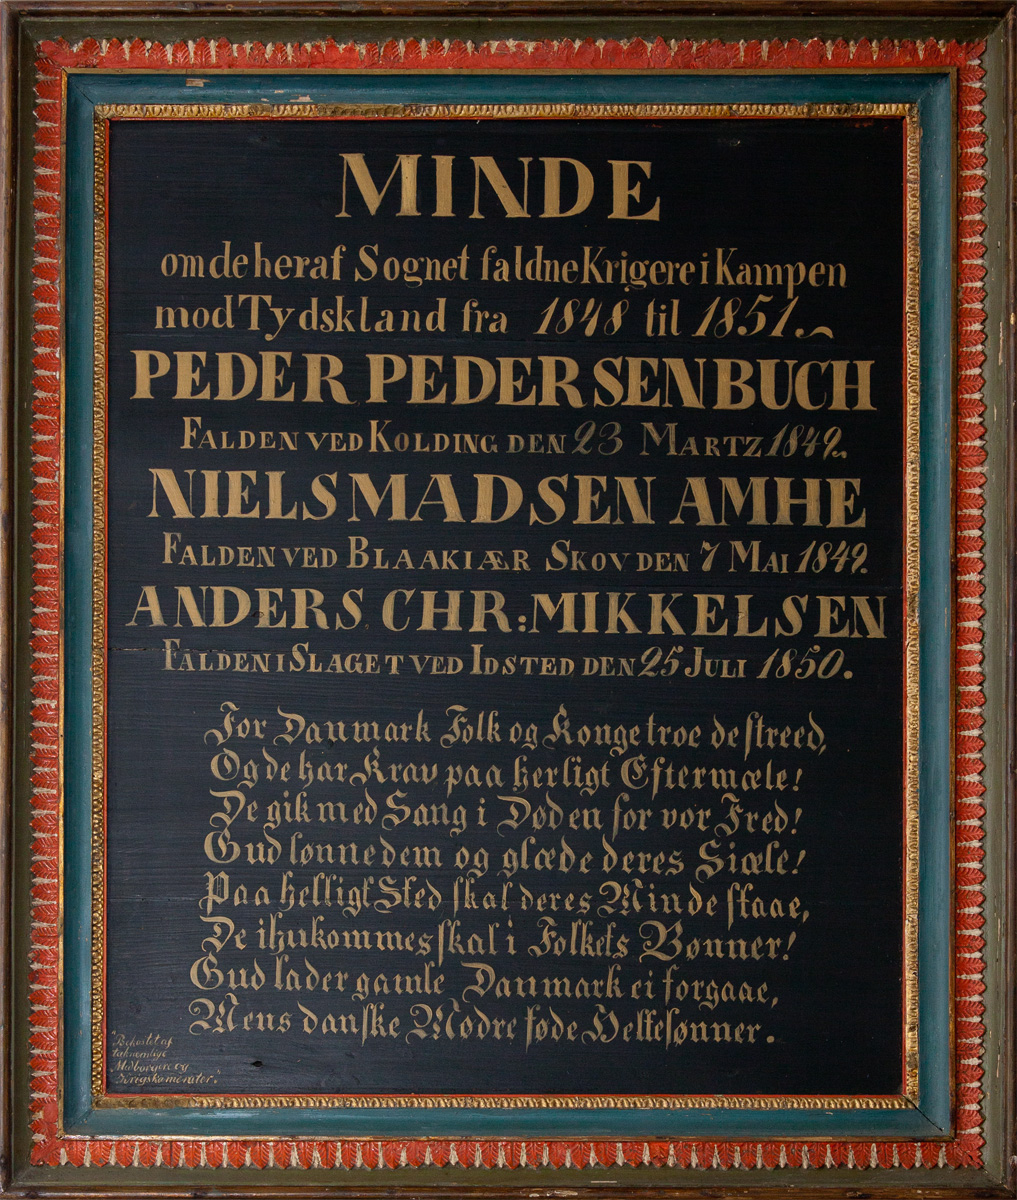 MINDE
om de heraf Sognet faldne Krigere i Kampen
mod Tydskland fra 1848 til 1851.
PEDER PEDERSEN BUCH
FALDEN VED KOLDING DEN 23 MARTZ 1849.
NIELS MADSEN AMHE
FALDEN VED BLAAKIÆR SKOV DEN 7 MAI 1849.
ANDERS CHR: MIKKELSEN
FALDEN I SLAGET VED IDSTED DEN 25 JULI 1850.
For Danmark Folk og Konge troe de streed,
Og de har Krav paa herligt Eftermæle!
De gik med Sang i Døden for vor Fred!
Gud lønne dem og glæde deres Siæle!
Paa helligt Sted skal deres Minde staae,
De ihukommes skal i Folkets Bønner!
Gud lader gamle Danmark ei forgaae,
Mens danske Mødre føde Heltesønner.
Bekostet af
taknemlige
Medborgere og
Krigskamerater.